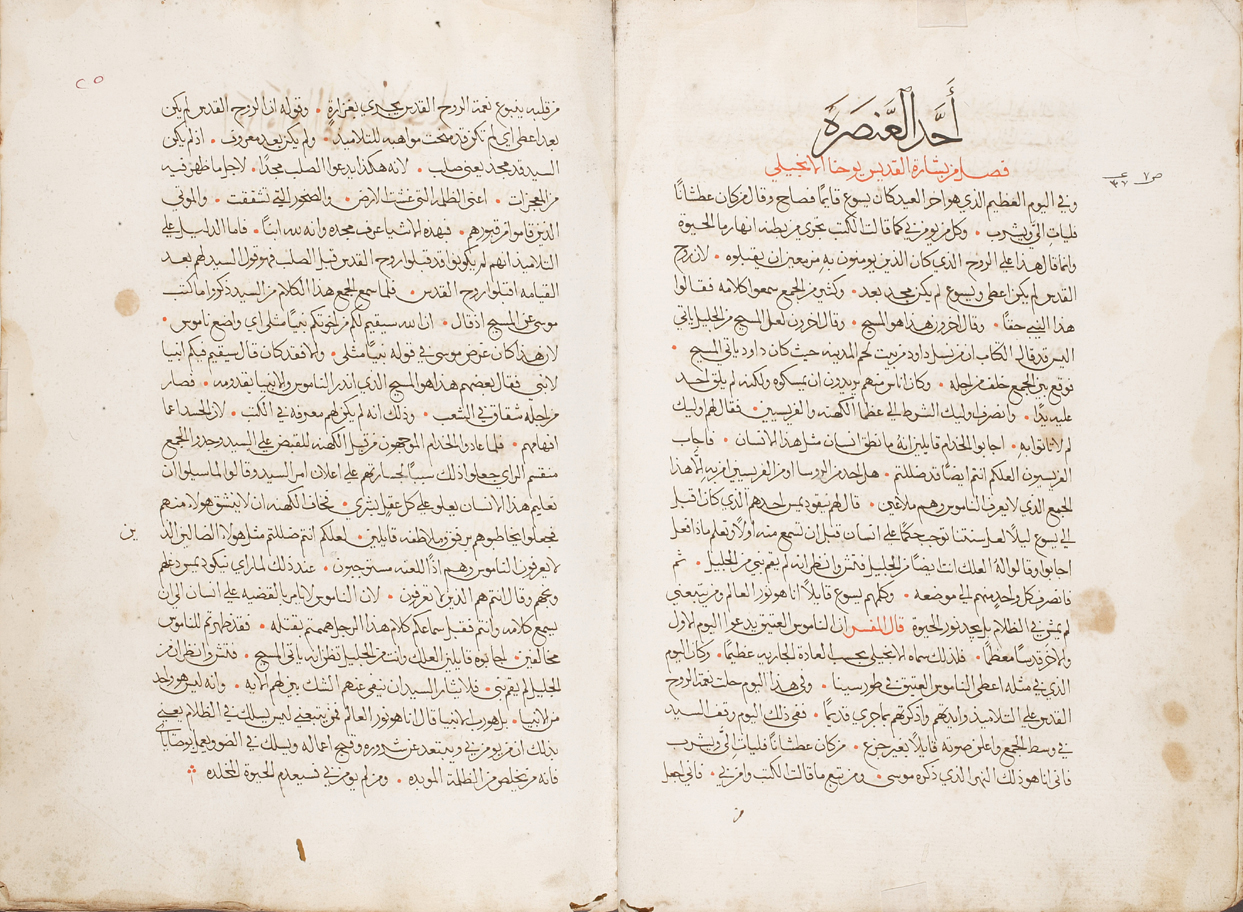 أَحَد العَنصَرَة
فصل من بشارة القديس يوحنا الانجيلي
ص٧ عـ ٣٧
وفي اليوم العظيم الذي هو اخر العيد كان يسوع قايمًا فصاح وقال من كان عطشانًا
فليات اليّ ويشرب • وكل من يومن بي كما قالت الكتب تجري من بطنه انهار ما الحيوة
وانما قال هذا على الروح الذي كان الذين يومنون به مزمعين ان يقبلوه • لان روح
القدس لم يكن اعطي ويسوع لم يكن مجد بعد • وكثير من الجمع سمعوا كلامه فقالوا
هذا النبي حقًا • وقال اخرون هذا هو المسيح • وقال اخرون لعل المسيح من الجليل ياتي
اليس قد قال الكتاب ان من نسل داود من بيت لحم المدينه حيث كان داود ياتي المسيح •
فوقع بين الجمع خلف من اجله • وكان اناس منهم يريدون ان يمسكوه ولكنه لم يلق احد
عليه يدًا • وانصرف اوليك الشرط الى عظما الكهنه والفريسيين • فقال لهم اوليك
لم لا تاتوا به • اجابوا الخدام قايلين انهُ ما نطق انسان مثل هذا الانسان • فاجاب
الفريسيون العلكم انتم ايضًا قد ضللتم • هل احد من الروسا او من الفريسيين امن به الا هذا
الجمع الذي لا يعرف الناموس وهم ملاعين • قال لهم نيقوديمس احدهم الذي كان اقبل
الى يسوع ليلًا لعل سنتنا توجب حكمًا على انسان قبل ان تسمع منه اولًا وتعلم ماذا فعل
اجابوا وقالوا لهُ العلك انت ايضًا من الجليل فتش وانظر انه لم يقم نبي من الجليل • ثم
فانصرف كل واحد منهم الى موضعه • وكلمهم يسوع قايلًا انا هو نور العالم ومن يتبعني
لم يمش في الظلام بل يجد نور الحيوة قال المفسر ان الناموس العتيق يدعوا اليوم الاول
والاخر قدسًا معظمًا • فلذلك سماه الانجيلي بحسب العادة الجاريه عظيمًا • وكان اليوم
الذي في مثله اعطي الناموس العتيق في طور سينا • وفي هذا اليوم حلت نعمة الروح
القدس على التلاميذ وايدتهم واذكرتهم بما جرى قديمًا • ففي ذلك اليوم وقف السيد
في وسط الجمع واعلن صوته قايلًا بغير جزع • من كان عطشانًا فليات اليّ ويشرب
فاني انا هو ذلك النهر الذي ذكره موسى • ومن يتبع ما قالت الكتب وامن بي • فاني اجعل
٢٥
من قلبه ينبوع نعمة الروح القدس يجري بغزارة • وقوله ان الروح القدس لم يكن
بعد اعطي اي لم تكن قد منحت مواهبه للتلاميد • ولم يكن بعد معروف • اذ لم يكن
السيد قد مجد يعني صلب • لانه هكذا يدعوا الصلب مجدًا • لاجل ما ظهر فيه
من المعجزات • اعني الظلمه التي غشت الارض • والصخور التي تشققت • والموتي
الذين قاموا من قبورهم • فبهذه الاشيا عرف مجده وانه لله ابنًا • فاما الدليل على
التلاميذ انهم لم يكونوا قد قبلوا روح القدس قبل الصلب فهو قول السيد لهم بعد
القيامه اقبلوا روح القدس • فلما سمع الجمع هذا الكلام من السيد ذكروا ما كتب
موسى عن المسيح اذ قال • ان الله سيقيم لكم من اخوتكم نبيًا مثلي اي واضع ناموس •
لان هذا كان غرض موسى في قوله نبيًا مثلي • والا فقد كان قال سيقيم فيكم انبيا
لا نبي فقال بعضهم هذا هو المسيح الذي انذر الناموس والانبيا بقدومه • فصار
من اجله شقاق في الشعب • وذلك انه لم يكن لهم معرفه في الكتب • لان الحسد اعما
افهامهم • فلما عادوا الخدام الموجهون من قبل الكهنه للقبض على السيد وجدوا الجمع
منقسم الراي جعلوا ذلك سببًا لجسارتهم على اعلان امر السيد وقالوا لما سيلوا ان
تعليم هذا الانسان يعلو على كل عقل بشري • فخاف الكهنه ان لا يتشوشوا هولاء منهم
فجعلوا يخاطبوهم برفق وملاطفه قايلين • لعلكم انتم ضللتم مثل هولاء الضالين الذين
لا يعرفون الناموس وهم اذًا للعنه مستوجبون • عند ذلك لما راي نيقوديمس ذلك
وبخهم وقال انتم هم الذين لا تعرفون • لان الناموس لا يامر بالقضيه على انسان الى ان
يسمع كلامه وانتم فقبل سماعكم كلام هذا الرجل هممتم بقتله • فقد ظهرتم للناموس
مخالفين • اجابوه قايلين العلك وانت من الجليل تظن انه ياتي المسيح • فتش وانظر ان من
الجليل لم يقم نبي • فلا يشا السيد ان ينفي عنهم الشك بين لهم الايه • وانه ليس هو واحد
من الانبيا • بل هو رب الانبيا قال انا هو نور العالم فمن يتبعني ليس يسلك في الظلام يعني
بذلك ان من يومن بي ويبتعد عن شروره وقبيح اعماله ويسلك في الضو ويعمل بوصاياي
فانه من يتخلص من الظلمة الموبده • ومن لم يومن بي فسيعدم الحيوة المخلده